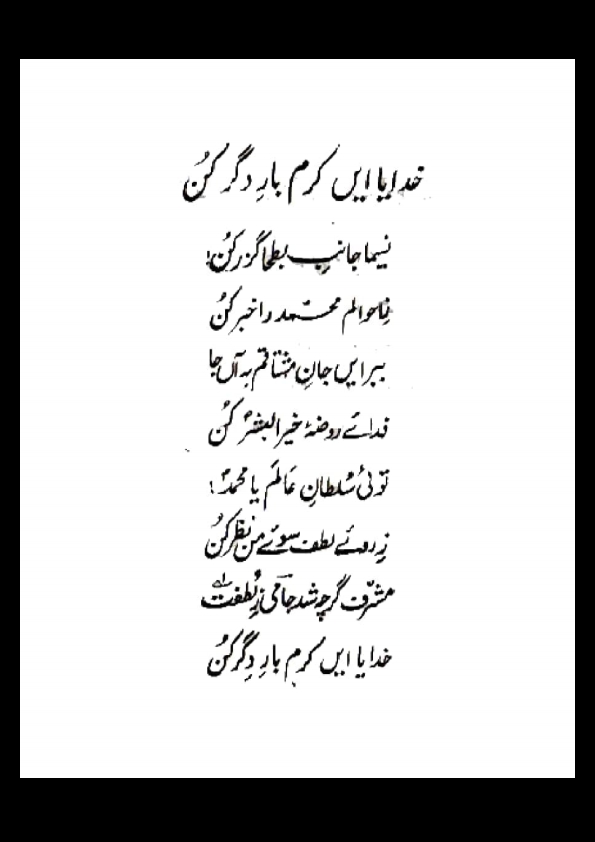 خدایا ایں کرم بارِ دگر کُن
نسیما جانبِ بطحا گزر کُن!
زِ احوالم محمّد را خبر کُن
ببر ایں جانِ مشتاقم بہ آں جا
فدائے روضۂ خیر البشرؐ کُن
توئی سُلطانِ عَالَم یا محمدؐ!
زِ روئے لطف سوئے من نظر کُن
مشرّف گرچہ شد جامیؔ زِ لُطفت
خدایا ایں کرم بارِ دِگر کُن